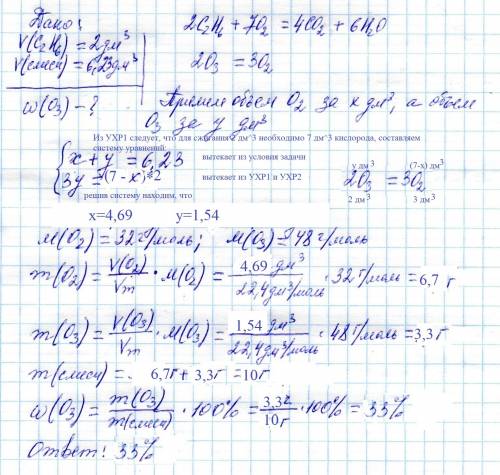 Дано:
V(C₂H₆) = 2дм³
V(смеси) = 6,23дм³
ω(O₃) - ?
2C₂H₆ + 7O₂ = 4CO₂ + 6H₂O
2O₃ = 3O₂
Примем объем O₂ за x дм³, а объем
O₃ за y дм³
Из УХР1 следует, что для сжигания 2 дм^3 необходимо 7 дм^3 кислорода, составляем
систему уравнений:
x + y = 6,23 вытекает из условия задачи
3y = (7 - x)*2 вытекает из УХР1 и УХР2
решив систему находим, что
y дм³ (7-x) дм³
2O₃ = 3O₂
2 дм³ 3 дм³
x=4,69 y=1,54
M(O₂) = 32 г/моль; M(O₃) = 48 г/моль
m(O₂) = V(O₂)/Vm · M(O₂) = 4,69 дм³/22,4дм³/моль · 32 г/моль = 6,7 г
m(O₃) = V(O₃)/Vm · M(O₃) = 1,54 дм³/22,4дм³/моль · 48 г/моль = 3,3г
m(смеси) = 6,7г + 3,3г = 10г
ω(O₃) = m(O₃)/m(смеси) · 100% = 3,3г/10г · 100% = 33%
Ответ: 33%